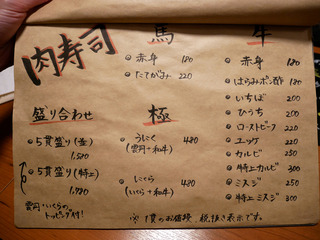 肉寿司
馬
赤身 180
たてがみ 220
牛
赤身 180
はらみポン酢 180
いちぼ 200
ひうち 200
ローストビーフ 220
ユッケ 220
カルビ 250
特上カルビ 300
ミスジ 250
特上ミスジ 300
盛り合わせ
5貫盛り(並)
1,580
5貫盛り(特上)
1,780
雲丹・いくらの
トッピング付!
極
うにく 480
(雲丹+和牛)
にくら 480
(いくら+和牛)
※1貫のお値段 税抜き表示です。